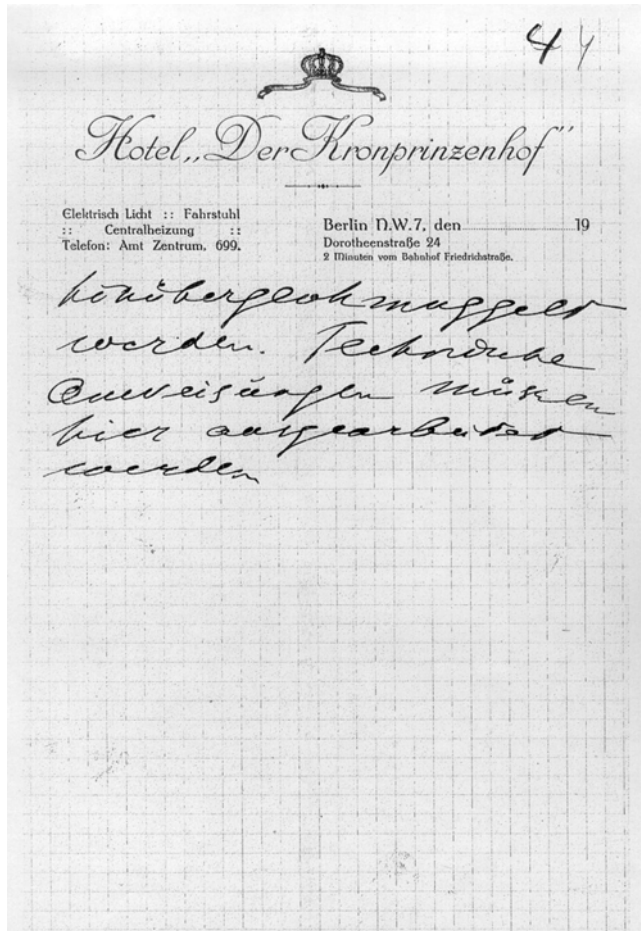 4 4
Hotel „Der Kronprinzenhof"
Elektrisch Licht :: Fahrstuhl
:: Centralheizung ::
Telefon: Amt Zentrum, 699.
Berlin N.W.7, den 19
Dorotheenstraße 24
2 Minuten vom Bahnhof Friedrichstraße.
hinübergeschmuggelt
werden. Technische
Anweisungen müssen
hier ausgearbeitet
werden